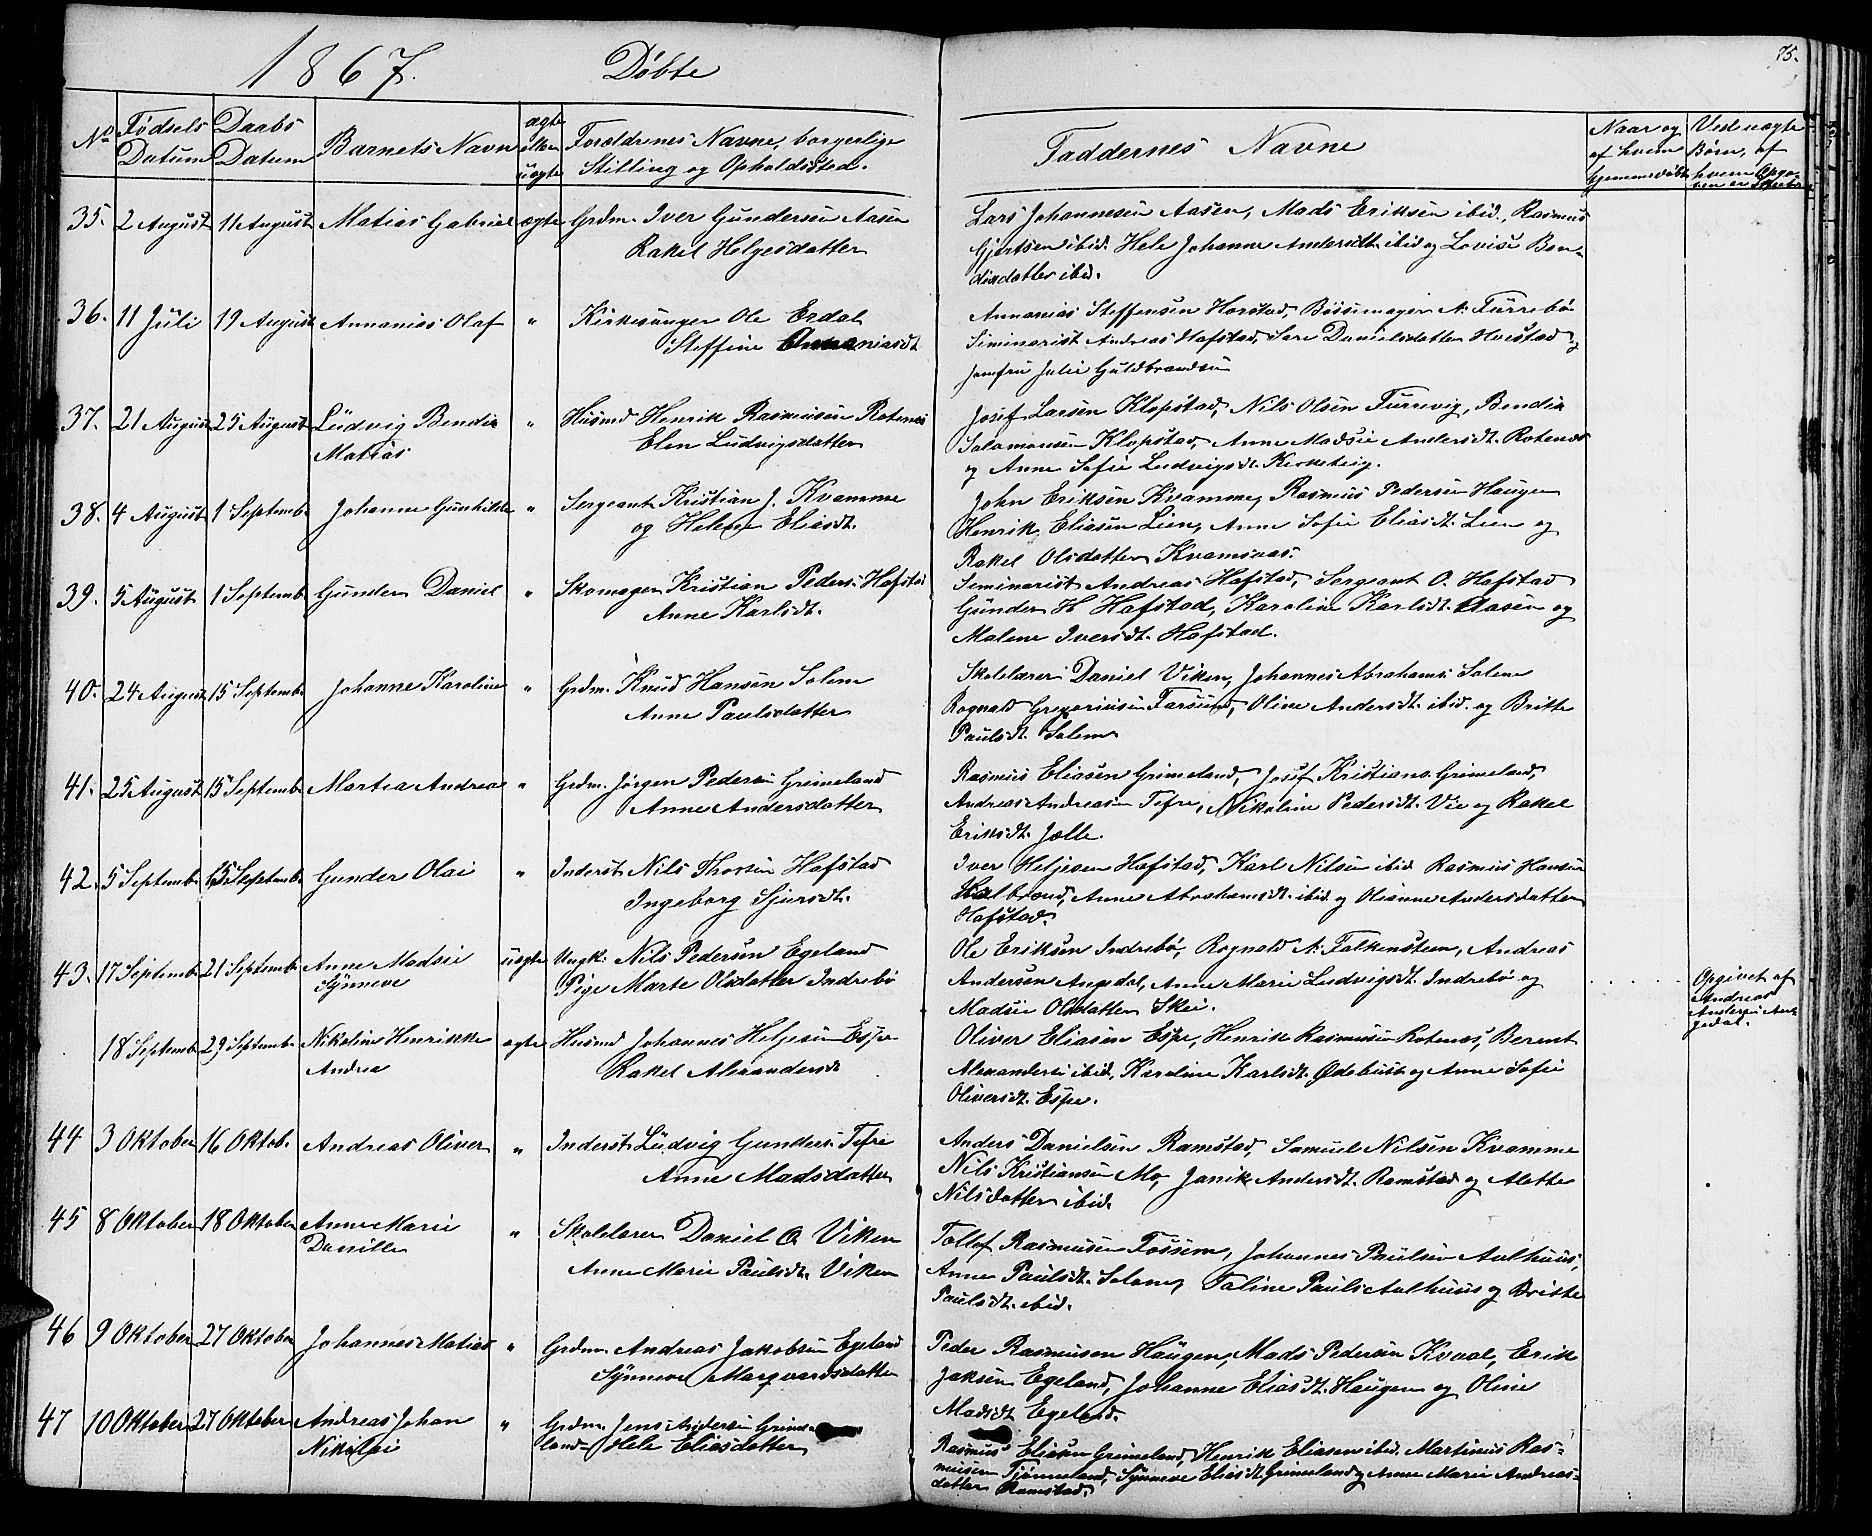 1867. Döbte
75.
No Födsels Datum Daabs Datum Barnets Navn ægte eller uægte Forældrenes Navne, borgerlige Stilling og Opholdssted. Faddernes Navne Naar og af hvem hjemmedöbt Ved uægte Börn, af hvem Opga-ven er
35. 2 August 11 August Matias Gabriel ægte Grdm. Iver Gundersen Aasen
Rakel Helgesdatter
Lars Johannesen Aasen, Mads Eriksen ibid., Rasmus
Gjertsen ibid. Hele Johanne Andersdt. ibid og Lovise Ben-
dixdatter ibid.
36. 11 Juli 19 August Annanias Olaf " Kirkesanger Ole Erdal
Steffine Annaniasdt
Annanias Steffensen Horstad, Bössemager N. Furrebö
Siminarist Andreas Hafstad, Sare Danielsdatter Horstad og
Jomfru Julie Guldbrandsen
37. 21 August 25 August Ludvig Bendix
Matias
" Husmd Henrik Rasmusen Rotenes
Elen Ludvigsdatter
Josef Larsen Klopstad, Nils Olsen Furrevig, Bendix
Salamonsen Klopstad, Anne Madsie Andersdt. Rotenes
og Anne Sofie Ludvigsdt. Kirketeig.
38. 4 August 1 Septemb. Johanne Gunhilde " Sergeant Kristian J. Kvamme
og Helene Eliasdt.
John Eriksen Kvamme, Rasmus Pedersen Haugen
Henrik Eliasen Lien, Anne Sofie Eliasdt. Lien og
Rakel Olsdatter Kvamsaas.
39. 5 August 1 Septemb. Gunder Daniel " Skomager Kristian Peders. Hafstad
Anne Karlsdt.
Siminarist Andreas Hafstad, Sergeant O. Hafstad
Gunder H Hafstad, Karoline Karlsdt. Aasen og
Malene Iversdt. Hafstad.
40. 24 August 15 Septemb. Johanne Karoline " Grdm. Knud Hansen Solem
Anne Paulsdatter
Skolelærer Daniel Viken, Johannes Abrahams. Solem
Rognald Gregoriusen Farsund, Oline Andersdt. ibid. og Britte
Paulsdt. Solem
41. 25 August 15 Septemb. Martea Andrea " Grdm. Jörgen Pedersen Grimeland
Anne Andersdatter
Rasmus Eliasen Grimeland, Josef Kristians. Grimeland,
Andreas Andreasen Tefre, Nikoline Pedersdt. Vie og Rakel
Eriksdt. Jælle.
42. 5 Septemb. 15 Septemb. Gunder Olai " Inderst Nils Thorsen Hafstad
Ingeborg Sjursdt.
Iver Heljesen Hafstad, Karl Nilsen ibid Rasmus Hansen
Kalbrand, Anne Abrahamsdt. ibid. og Olianne Andersdatter
Hafstad.
43. 17 Septemb. 21 Septemb. Anne Madsie
Synneve
uægte Ungk. Nils Pedersen Egeland
Pige Marte Olsdatter Indrebö
Ole Eriksen Indrebö, Rognald N. Falkensteen, Andreas
Andersen Angedal, Anne Marie Ludvigsdt. Indrebö og
Madsie Olsdatter Skei.
Opgivet af
Andreas
Andersen An-
gedal.
18 Septemb. 29 Septemb. Nikoline Henrikke
Andrea
ægte Husmd Johannes Heljesen Espe
Rakel Alexandersdt
Oliver Eliasen Espe, Henrik Rasmusen Rotenes, Berent
Alexanders. ibid, Karoline Karlsdt. Ødebust og Anne Sofie
Oliversdt. Espe.
44 3 Oktober 16 Oktob. Andreas Oliver " Inderst Ludvig Gunders. Tefre
Anne Madsdatter
Anders Danielsen Ramstad, Samuel Nilsen Kvamme
Nils Kristiansen Mo, Janik Andersdt. Ramstad og Alette
Nilsdatter ibid.
45 8 Oktober 18 Oktober Anne Marie
Danille
" Skolelærer Daniel O Viken
Anne Marie Paulsdt. Viken
Tollef Rasmusen Fossem, Johannes Paulsen Aalhuus,
Anne Paulsdt. Solem, Taline Pauls. Aalhuus og Britte
Paulsdt. ibid.
46 9 Oktober 27 Oktober Johannes Matias " Grdm. Andreas Jakobsen Egeland
Synneve Marqvardsdatter
Peder Rasmusen Haugen, Mads Pedersen Kvaal, Erik
Jaksen Egeland, Johanne Eliasdt. Haugen og Oline
Madsdt Egeland.
47 10 Oktober 27 Oktober Andreas Johan
Nikolai
" Grdm. Jens Andersen Grime-
land Hele Eliasdatter
Rasmus Eliasen Grimeland, Henrik Eliasen ibid. Martinus Ras-
musen Tjönneland, Synneve Eliasdt Grimeland og Anne Marie Andreas-
datter Ramstad.